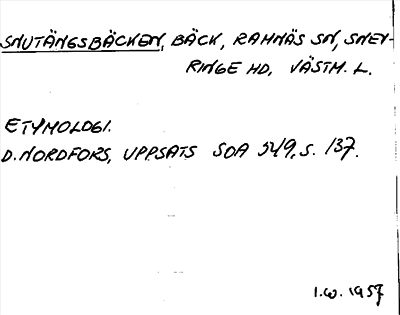 SNUTÄNGSBÄCKEN, BÄCK, RAMNÄS SN, SNEV-
RINGE HD, VÄSTM. L.
ETYMOLOGI.
D. NORDFORS, UPPSATS SOA 549, S. 137.
I.W. 1957